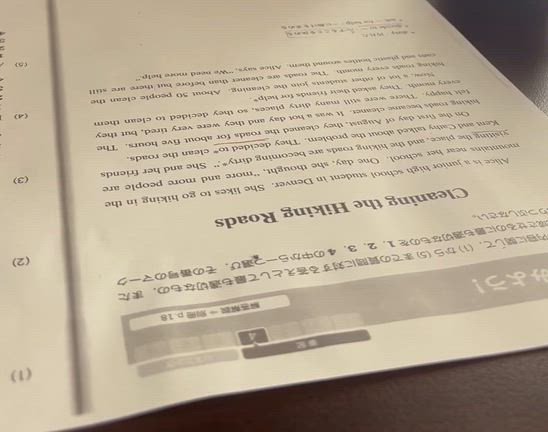 みよう!
筆記
4
解答解説 → 別冊 p.18
内容に関して, (1) から (5) までの質問に対する答えとして最も適切なもの, また
成させるのに最も適切なものを 1, 2, 3, 4 の中から一つ選び, その番号のマーク
つぶしなさい。
Cleaning the Hiking Roads
Alice is a junior high school student in Denver. She likes to go hiking in the
mountains near her school. One day, she thought, "more and more people are
visiting the place, and the hiking roads are becoming dirty*." She and her friends
Ken and Cathy talked about the problem. They decided to* clean the roads.
On the first day of August, they cleaned the roads for about five hours. The
hiking roads became cleaner. It was a hot day and they were very tired, but they
felt happy. There were still many dirty places, so they decided to clean them
every month. They asked their friends for help*.
Now, a lot of other students join the cleaning. About 50 people clean the
hiking roads every month. The roads are cleaner than before but there are still
cans and plastic bottles around them. Alice says, "We need more help."
* dirty 汚れた
* decide to ~することを決める
* ask ~ for help ~に助けを求める
(1)
(2)
(3)
(4)
(5)